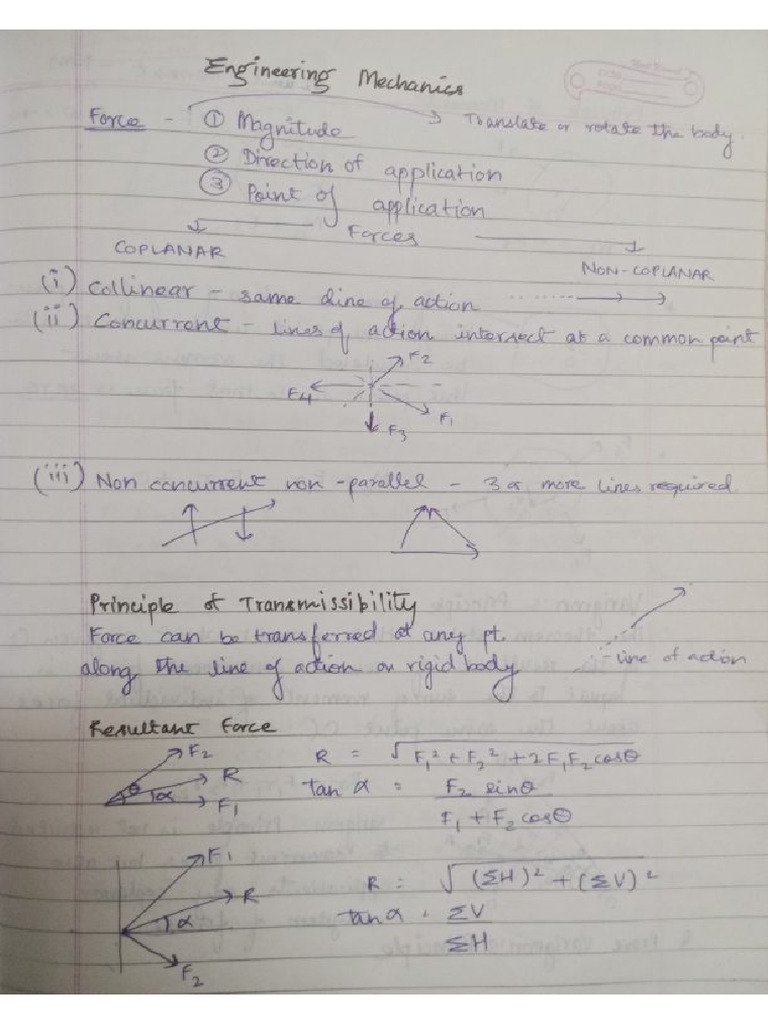 Engineering Mechanics
Force - ① Magnitude → Translate or rotate the body.
② Direction of application
③ Point of application
Forces
COPLANAR
NON-COPLANAR
(i) Collinear - same line of action
(ii) Concurrent - lines of action intersect at a common point
F2
F4
F1
F3
(iii) Non concurrent non-parallel - 3 or more lines required.
Principle of Transmissibility
Force can be transferred at any pt.
along the line of action on rigid body
line of action
Resultant Force
F2
R = √F₁² + F₂² + 2F₁F₂cosθ
θ α R
tan α = F₂ sinθ
F1
F₁ + F₂cosθ
F1
R
R = √(ΣH)² + (ΣV)²
α
tanα = ΣV
ΣH
F2